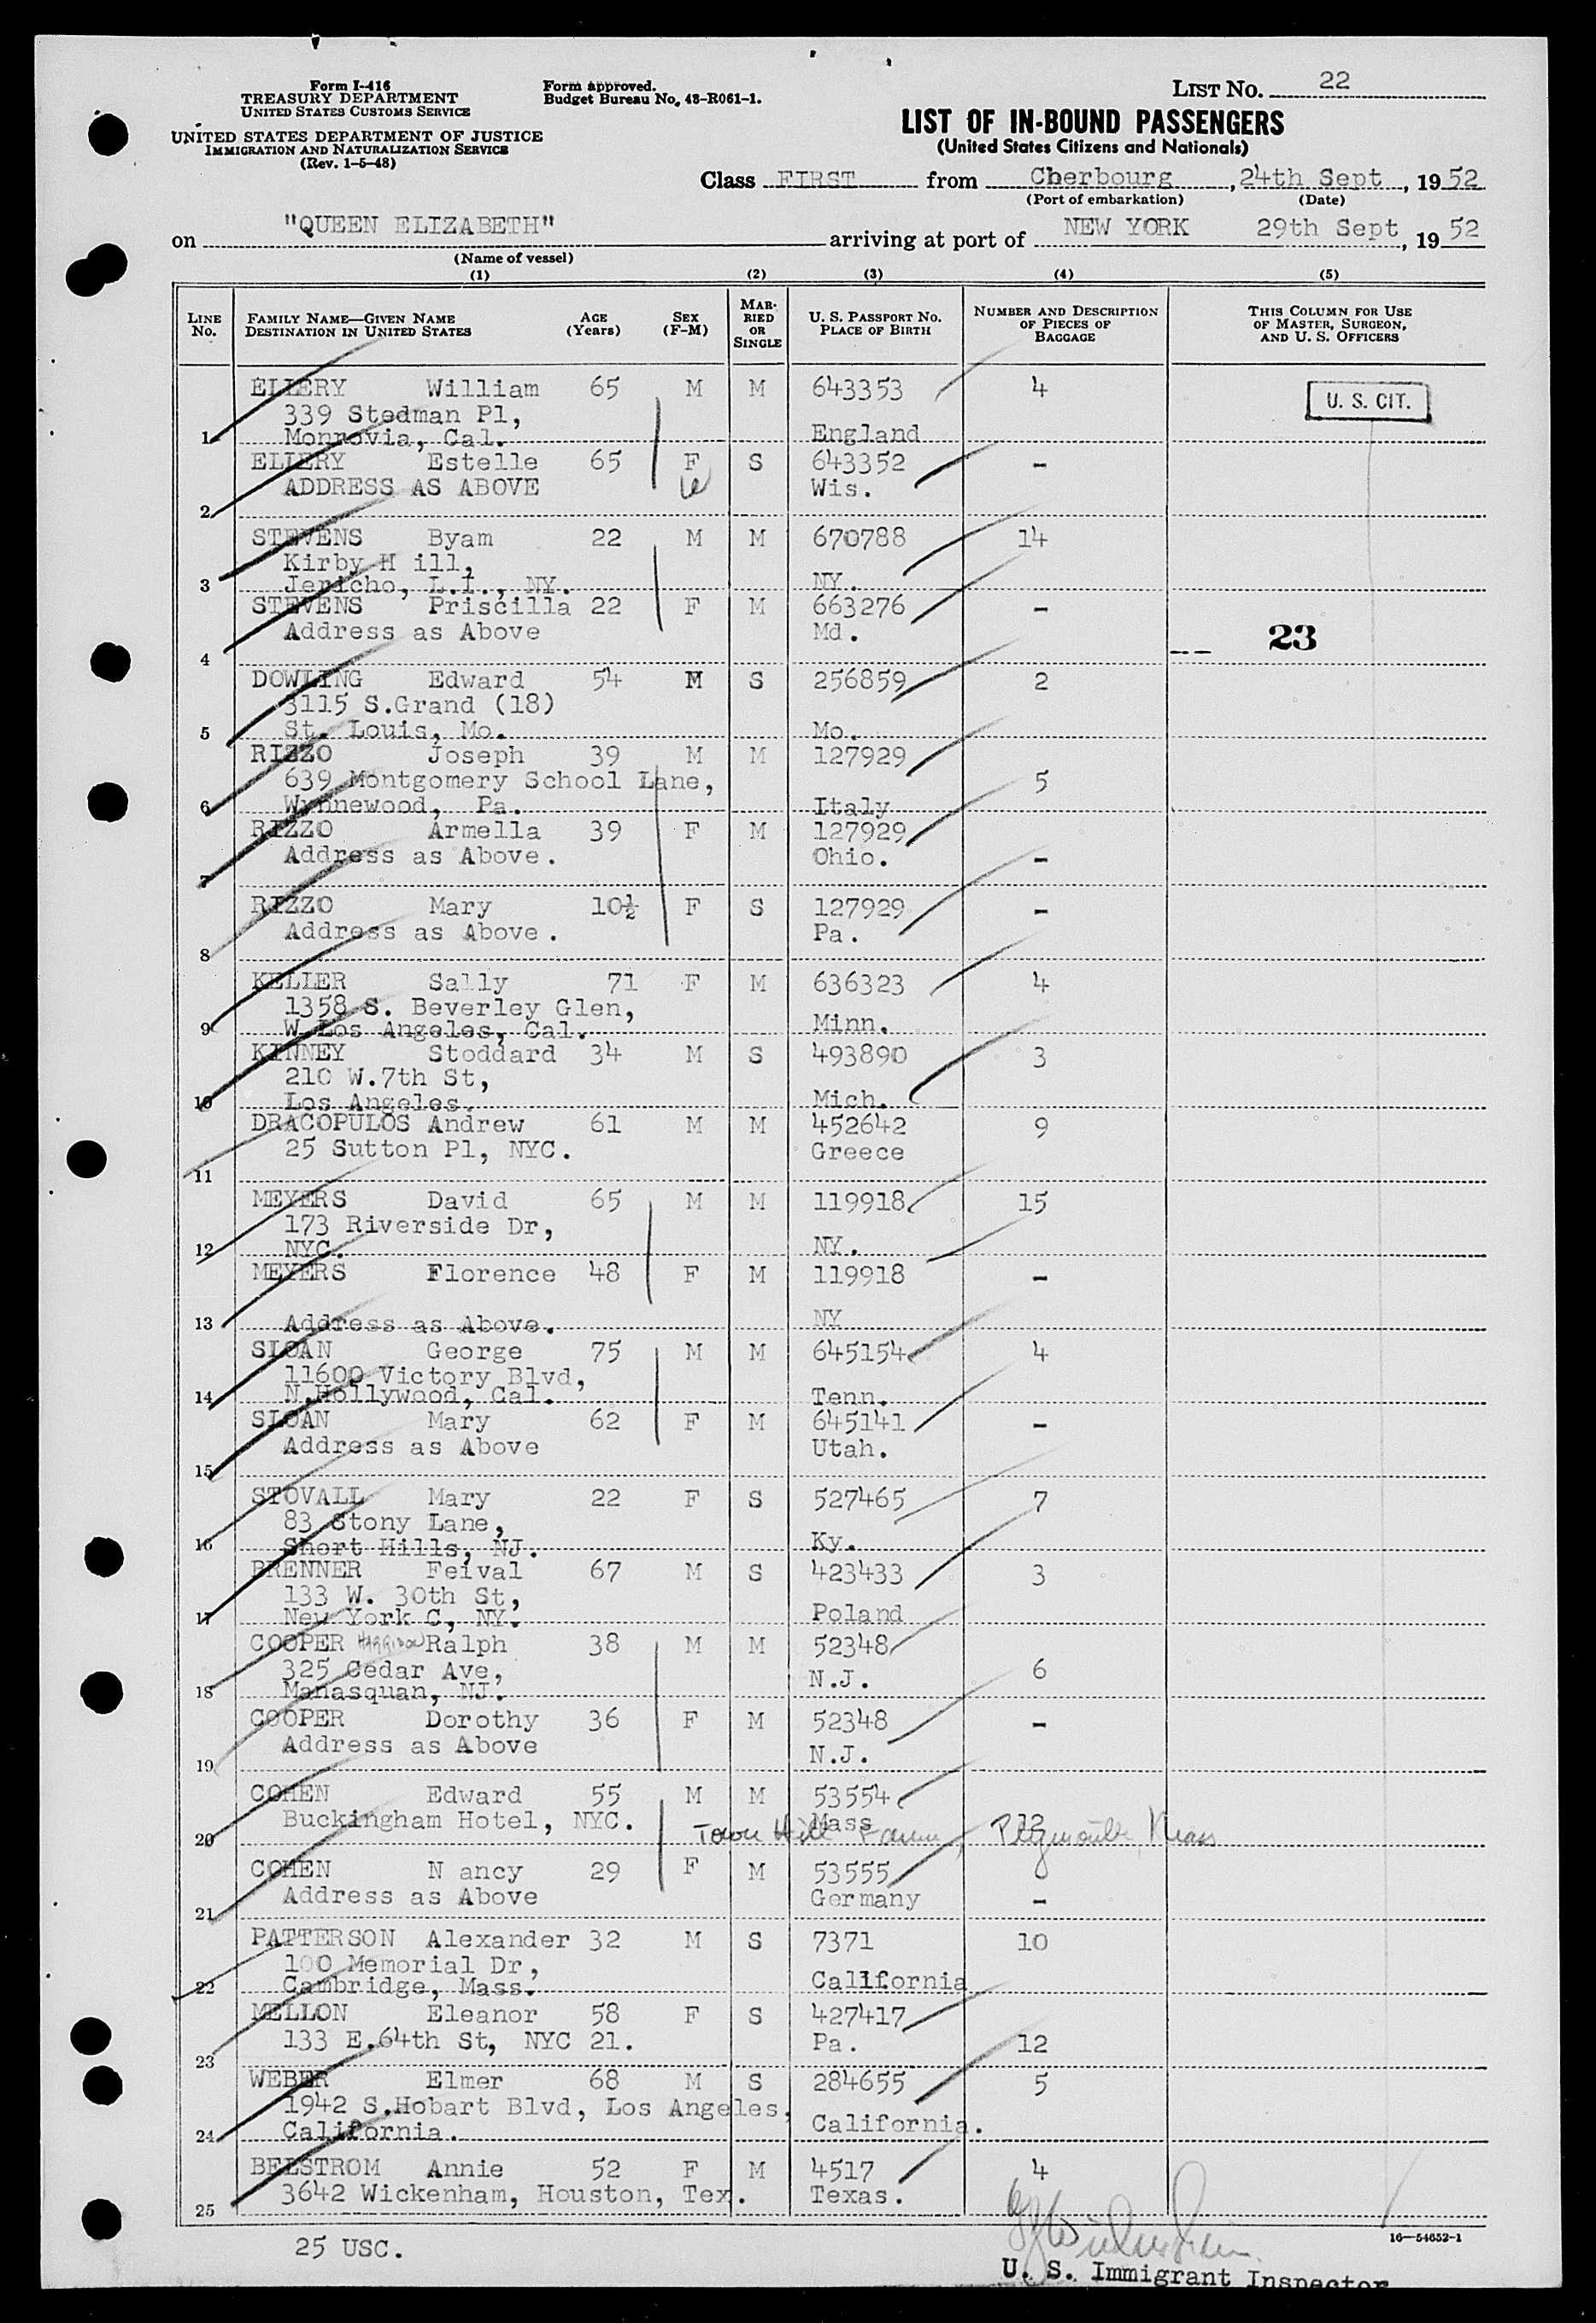 Form I-416
TREASURY DEPARTMENT
UNITED STATES CUSTOMS SERVICE
UNITED STATES DEPARTMENT OF JUSTICE
IMMIGRATION AND NATURALIZATION SERVICE
(Rev. 1-5-48)
Form approved.
Budget Bureau No. 43-R061-1.
LIST No. 22
LIST OF IN-BOUND PASSENGERS
(United States Citizens and Nationals)
Class FIRST from Cherbourg, 24th Sept, 1952
(Port of embarkation) (Date)
on "QUEEN ELIZABETH" arriving at port of NEW YORK 29th Sept, 1952
(Name of vessel)
(1) (2) (3) (4) (5)
LINE No. FAMILY NAME—GIVEN NAME DESTINATION IN UNITED STATES AGE (Years) SEX (F-M) MARRIED OR SINGLE U. S. PASSPORT No. PLACE OF BIRTH NUMBER AND DESCRIPTION OF PIECES OF BAGGAGE THIS COLUMN FOR USE OF MASTER, SURGEON, AND U. S. OFFICERS
ELLERY William 65 M M 643353 4 U. S. CIT.
339 Stedman Pl,
1 Monrovia, Cal. England
ELLERY Estelle 65 F S 643352 -
ADDRESS AS ABOVE W Wis.
2
STEVENS Byam 22 M M 670788 14
Kirby H ill,
3 Jericho, L.I., NY. NY.
STEVENS Priscilla 22 F M 663276 -
Address as Above Md. 23
4
DOWLING Edward 54 M S 256859 2
3115 S.Grand (18)
5 St. Louis, Mo. Mo.
RIZZO Joseph 39 M M 127929
639 Montgomery School Lane, 5
6 Wynnewood, Pa. Italy
RIZZO Armella 39 F M 127929
Address as Above. Ohio. -
7
RIZZO Mary 10½ F S 127929 -
Address as Above. Pa.
8
KELLER Sally 71 F M 636323 4
1358 S. Beverley Glen,
9 W.Los Angeles, Cal. Minn.
KINNEY Stoddard 34 M S 493890 3
210 W.7th St,
10 Los Angeles. Mich.
DRACOPULOS Andrew 61 M M 452642 9
25 Sutton Pl, NYC. Greece
11
MEYERS David 65 M M 119918 15
173 Riverside Dr,
12 NYC. NY.
MEYERS Florence 48 F M 119918 -
13 Address as Above. NY
SLOAN George 75 M M 645154 4
11600 Victory Blvd,
14 N.Hollywood, Cal. Tenn.
SLOAN Mary 62 F M 645141 -
Address as Above Utah.
15
STOVALL Mary 22 F S 527465 7
83 Stony Lane,
16 Short Hills, NJ. Ky.
BRENNER Feival 67 M S 423433 3
133 W. 30th St,
17 New York C, NY. Poland
COOPER HARRISON Ralph 38 M M 52348
325 Cedar Ave, N.J. 6
18 Manasquan, NJ.
COOPER Dorothy 36 F M 52348 -
Address as Above N.J.
19
COHEN Edward 55 M M 53554
Buckingham Hotel, NYC. Mass 12
20 Town Hill Farm, Plymouth, Mass
COHEN N ancy 29 F M 53555
Address as Above Germany -
21
PATTERSON Alexander 32 M S 7371 10
100 Memorial Dr,
22 Cambridge, Mass. California
MELLON Eleanor 58 F S 427417
133 E.64th St, NYC 21. Pa. 12
23
WEBER Elmer 68 M S 284655 5
1942 S.Hobart Blvd, Los Angeles,
24 California. California.
BELSTROM Annie 52 F M 4517 4
3642 Wickenham, Houston, Tex. Texas.
25
25 USC.
16—54652-1
U. S. Immigrant Inspector